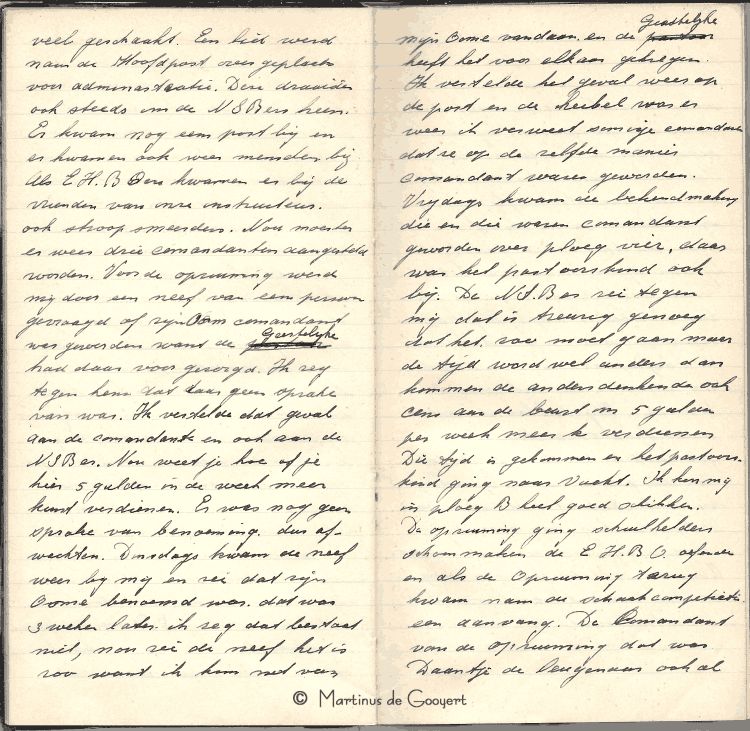 veel geschaakt. Een lied werd
naar de Hoofdpost over geplaats
voor administratie. Deze draaiden
ook steeds om de NSBers heen.
Er kwam nog een post bij en
er kwamen ook weer menschen bij
Als E.H.B.Oers kwamen er bij de
vrienden van onze instructeur.
ook stroop smeerders. Nou moesten
er weer drie comandanten aangesteld
worden. Voor de opruiming werd
mij door een neef van een persoon
gevraagd of zijn Oom comandant
was geworden want de Geestelijke
had daar voor gezorgd. Ik zeg
tegen hem dat daar geen sprake
van was. Ik vertelde dat geval
aan de comandante en ook aan de
NSBer. Nou weet je hoe of je
hier 5 gulden in de week meer
kunt verdienen. Er was nog geen
sprake van benoeming. dus af-
wachten. Dinsdags kwam de neef
weer bij mij en zei dat zijn
Oome benoemd was. dat was
3 weken later. ik zeg dat bestaat
niet, nou zei de neef het is
zoo want ik kom net van
mijn Oome vandaan. en de Geestelijke
heeft het voor elkaar gekregen.
Ik vertelde het geval weer op
de post en de heibel was er
weer ik verweet sommige comandanten
dat ze op de zelfde manier
comandant waren geworden.
Vrijdags kwam de bekendmaking
die en die waren comandant
geworden over ploeg vier, daar
was het pastoorskind ook
bij. De NSBer zei tegen
mij dat is treurig genoeg
dat het zoo moet gaan maar
de tijd word wel anders dan
kommen de andersdenkende ook
eens aan de beurt om 5 gulden
per week meer te verdienen
Die tijd is gekommen en het pastoors-
kind ging naar Vucht. Ik kon mij
in ploeg B heel goed schikken.
De opruiming ging schuilkelders
schoonmaken de E.H.B.O. oefenen
en als de Opruiming terug
kwam nam de schaakcompetietie
een aanvang. De Comandant
van de opruiming dat was
Daantje de leugenaar ook al
© Martinus de Gooyert